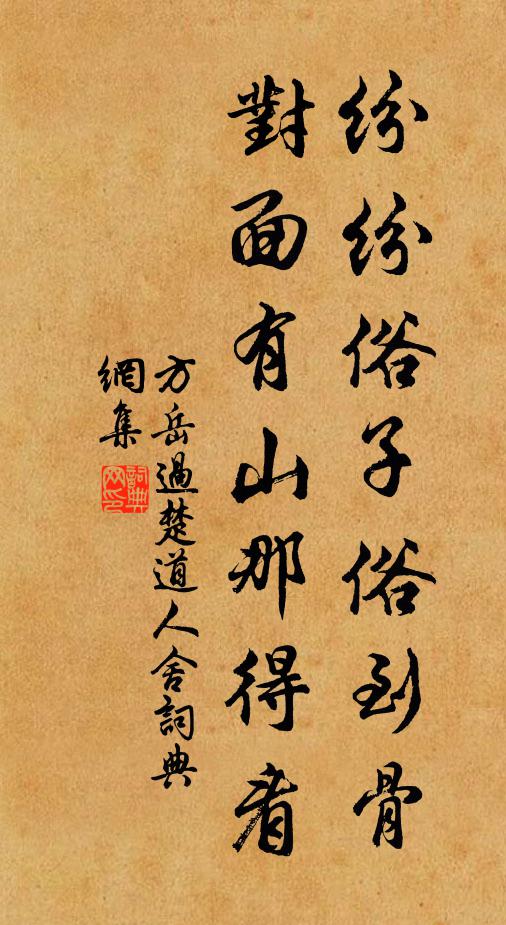 紛紛俗子俗到骨
對面有山那得看
方岳過楚道人舍詞典
網集
詞典
网印